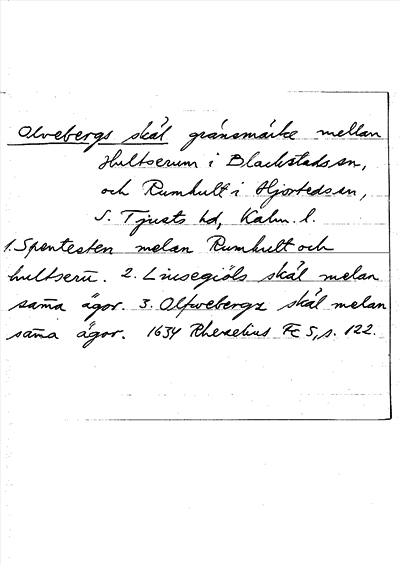 Olvebergs skäl gränsmärke mellan
Hultserum i Blackstads sn,
och Rumhult i Hjorteds sn,
S. Tjusts hd, Kalm. l.
1. Spentesten melan Rumhult och
hultserū. 2. Liusegiöls skäl melan
sam̄a ägor. 3. Olfwebergz skäl melan
sam̄a ägor. 1634 Rhezelius Fc 5, s. 122.